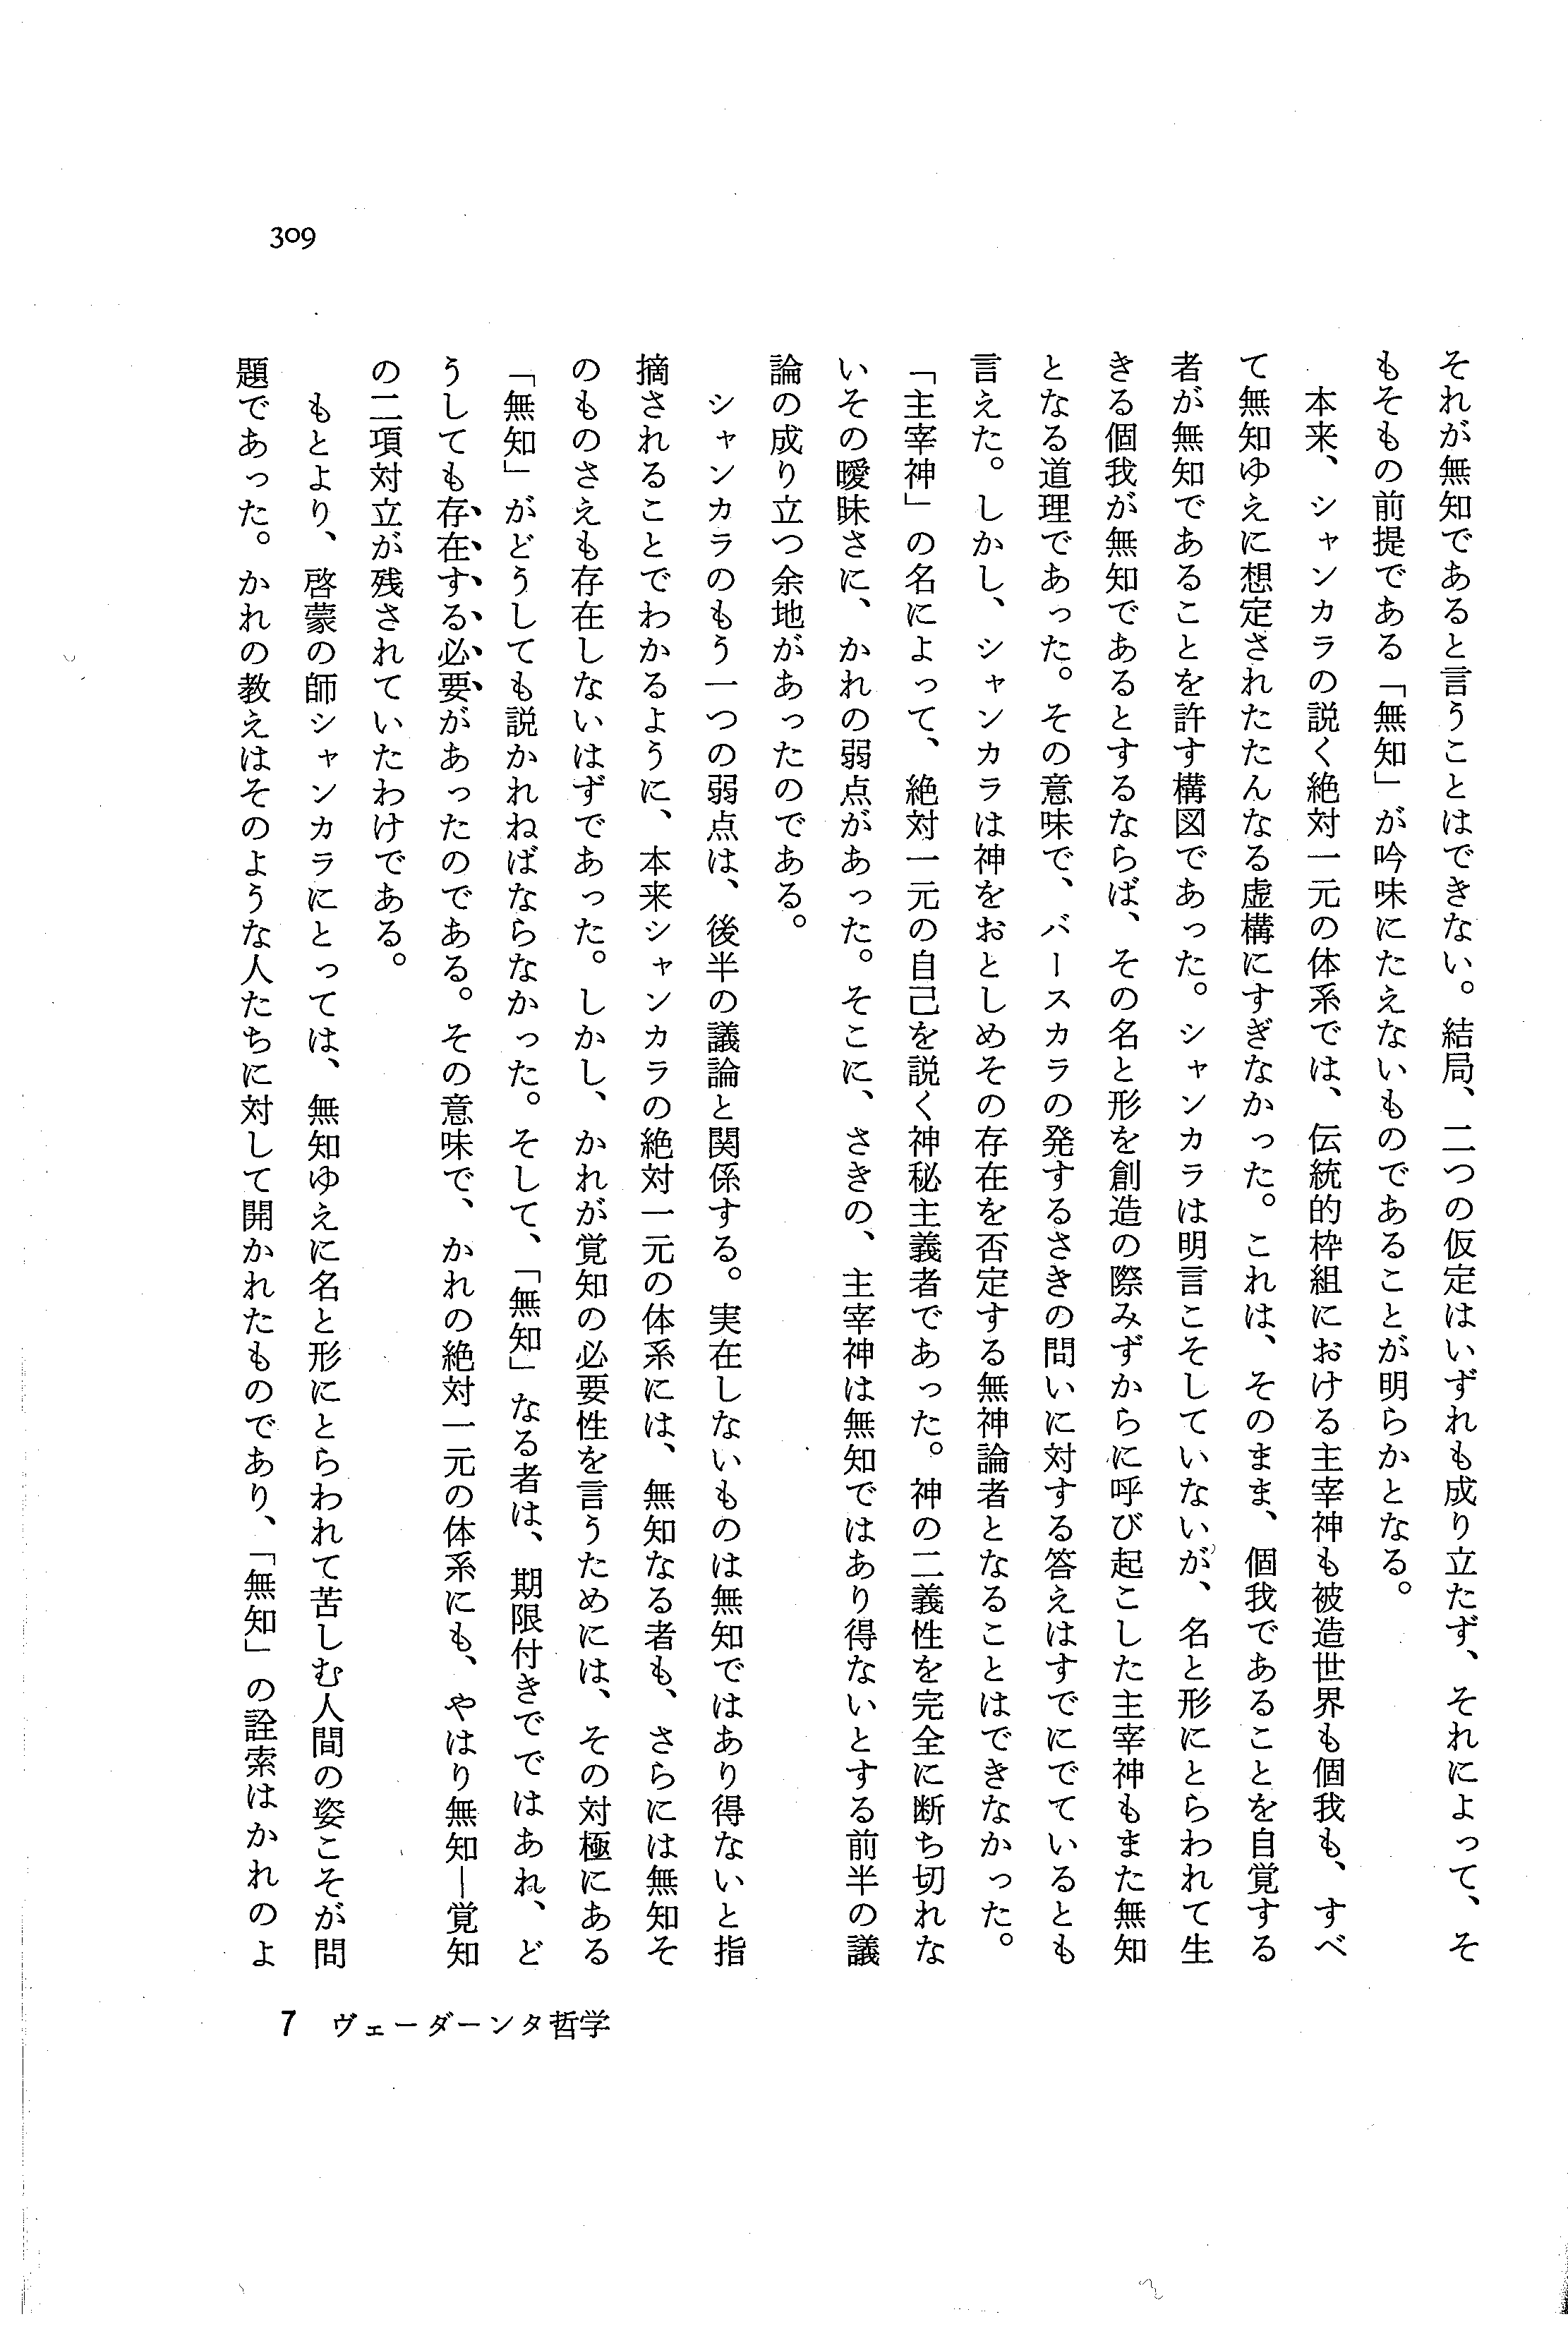 309
それが無知であると言うことはできない。結局、二つの仮定はいずれも成り立たず、それによって、そ
もそもの前提である「無知」が吟味にたえないものであることが明らかとなる。
本来、シャンカラの説く絶対一元の体系では、伝統的枠組における主宰神も被造世界も個我も、すべ
て無知ゆえに想定されたたんなる虚構にすぎなかった。これは、そのまま、個我であることを自覚する
者が無知であることを許す構図であった。シャンカラは明言こそしていないが、名と形にとらわれて生
きる個我が無知であるとするならば、その名と形を創造の際みずからに呼び起こした主宰神もまた無知
となる道理であった。その意味で、バースカラの発するさきの問いに対する答えはすでにでているとも
言えた。しかし、シャンカラは神をおとしめその存在を否定する無神論者となることはできなかった。
「主宰神」の名によって、絶対一元の自己を説く神秘主義者であった。神の二義性を完全に断ち切れな
いその曖昧さに、かれの弱点があった。そこに、さきの、主宰神は無知ではあり得ないとする前半の議
論の成り立つ余地があったのである。
シャンカラのもう一つの弱点は、後半の議論と関係する。実在しないものは無知ではあり得ないと指
摘されることでわかるように、本来シャンカラの絶対一元の体系には、無知なる者も、さらには無知そ
のものさえも存在しないはずであった。しかし、かれが覚知の必要性を言うためには、その対極にある
「無知」がどうしても説かれねばならなかった。そして、「無知」なる者は、期限付きでではあれ、ど
うしても存在する必要があったのである。その意味で、かれの絶対一元の体系にも、やはり無知―覚知
の二項対立が残されていたわけである。
もとより、啓蒙の師シャンカラにとっては、無知ゆえに名と形にとらわれて苦しむ人間の姿こそが問
題であった。かれの教えはそのような人たちに対して開かれたものであり、「無知」の詮索はかれのよ
7 ヴェーダーンタ哲学